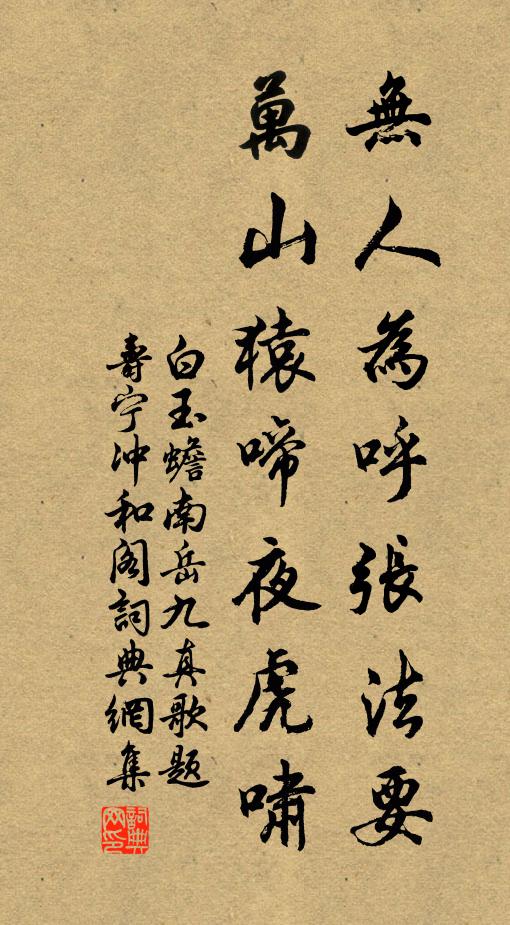 無人為呼張法要
萬山猿啼夜虎嘯
白玉蟾南岳九真歌題
壽宁冲和阁詞典網集
詞典网印